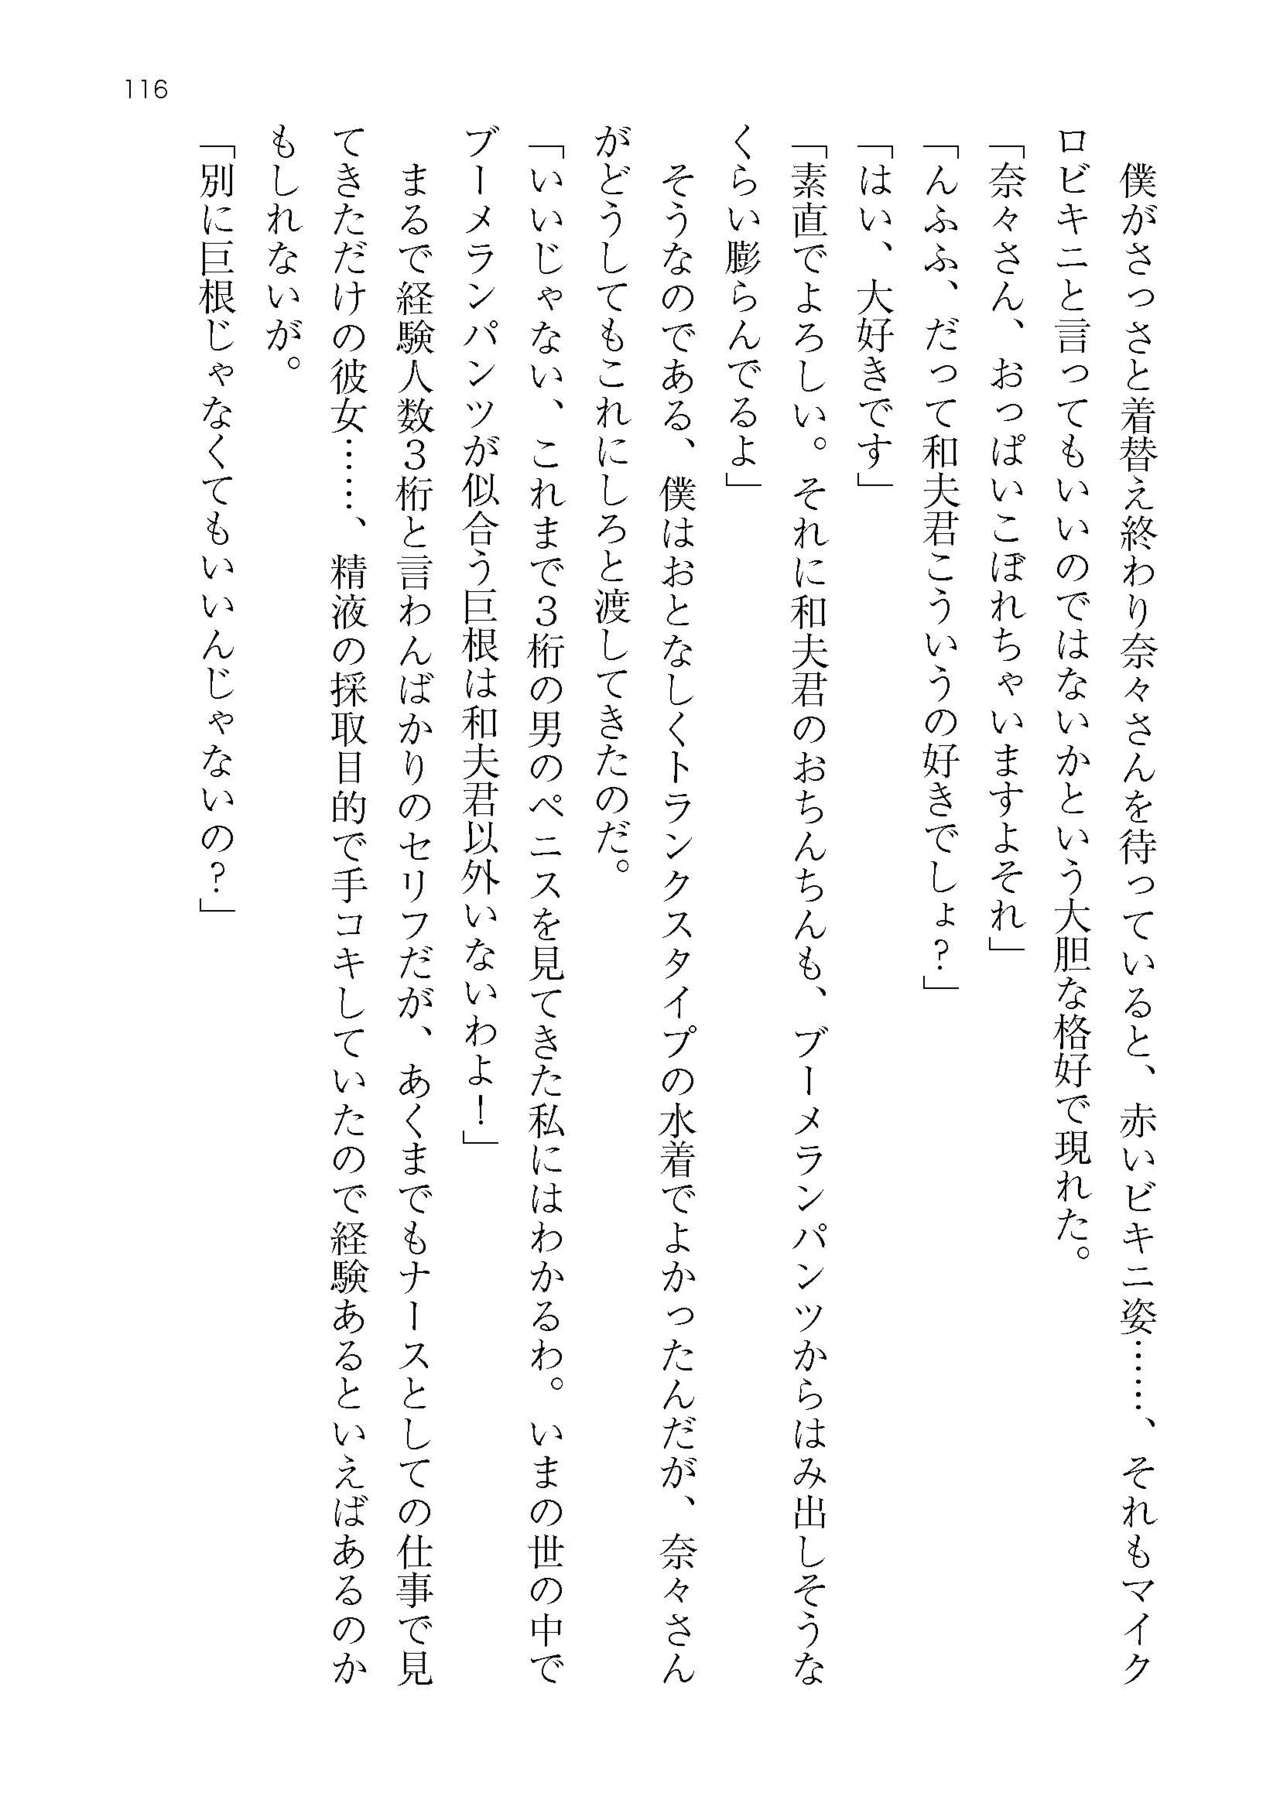 116
　僕がさっさと着替え終わり奈々さんを待っていると、赤いビキニ姿……、それもマイク
ロビキニと言ってもいいのではないかという大胆な格好で現れた。
「奈々さん、おっぱいこぼれちゃいますよそれ」
「んふふ、だって和夫君こういうの好きでしょ？」
「はい、大好きです」
「素直でよろしい。それに和夫君のおちんちんも、ブーメランパンツからはみ出しそうな
くらい膨らんでるよ」
　そうなのである、僕はおとなしくトランクスタイプの水着でよかったんだが、奈々さん
がどうしてもこれにしろと渡してきたのだ。
「いいじゃない、これまで３桁の男のペニスを見てきた私にはわかるわ。いまの世の中で
ブーメランパンツが似合う巨根は和夫君以外いないわよ！」
　まるで経験人数３桁と言わんばかりのセリフだが、あくまでもナースとしての仕事で見
てきただけの彼女……、精液の採取目的で手コキしていたので経験あるといえばあるのか
もしれないが。
「別に巨根じゃなくてもいいんじゃないの？」